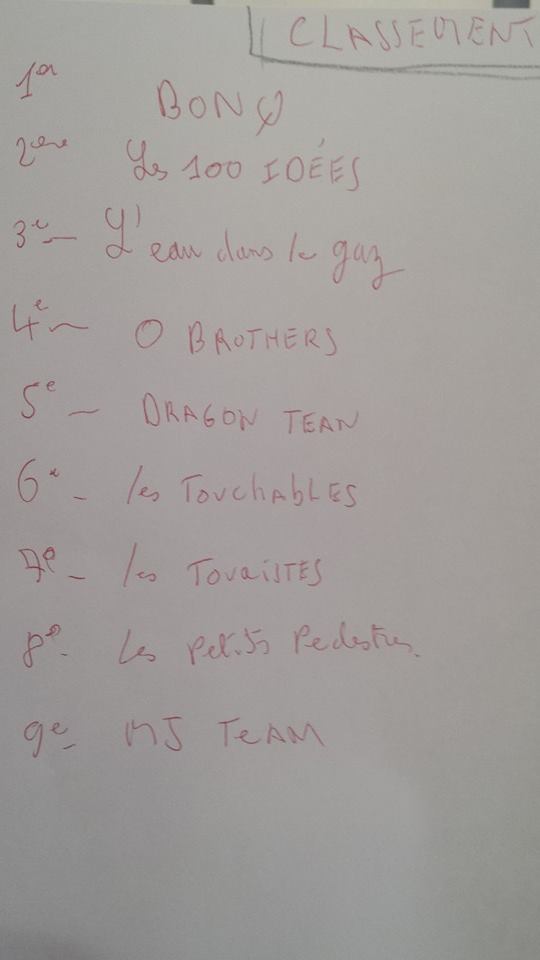 CLASSEMENT
1er
BON
2ème Les 100 IDÉES
3e - L'eau dans le gaz
4e - O BROTHERS
5e - DRAGON TEAM
6e - les TouchabLES
7e - les TouristES
8e - Les petits Pedestres.
9e - MJ TEAM